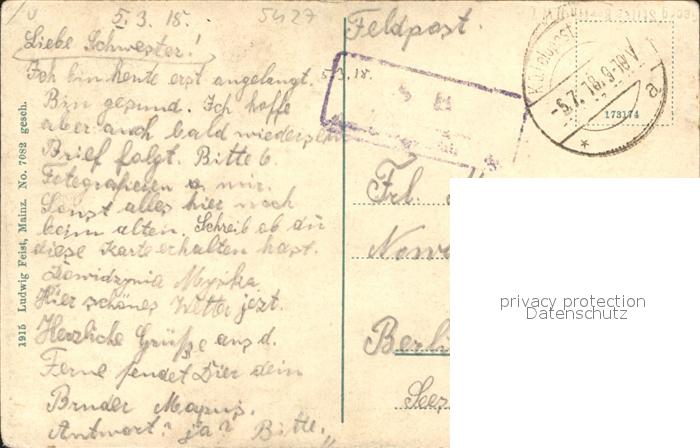 5.3.18.
5427
Liebe Schwester!
Ich bin heute erst angelangt 5.3.18.
Bin gesund. Ich hoffe
aber auch bald wiedersehn
Brief folgt. Bitte 6.
Fotografieren v. mir.
Sonst alles hier noch
beim alten. Schreib ob du
diese Karte erhalten hast.
Hier schönes Wetter jezt.
Herzliche Grüße aus d.
Ferne sendet Dier dein
Bruder
Antwort? ja? Bitte.
1915 Ludwig Feist, Mainz. No. 7082 gesch.
Feldpost.
173174
Frl.
Berli
privacy protection
Datenschutz